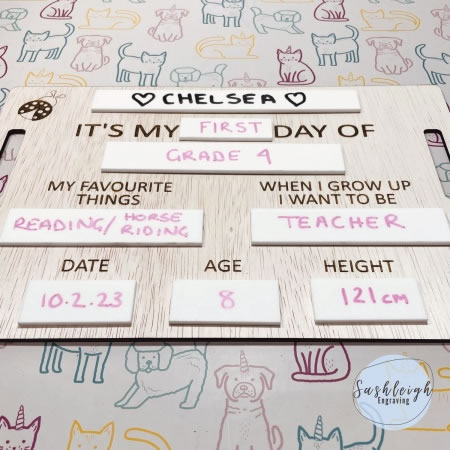 ♡ CHELSEA ♡
IT'S MY FIRST DAY OF
GRADE 4
MY FAVOURITE THINGS
READING/ HORSE RIDING
WHEN I GROW UP I WANT TO BE
TEACHER
DATE
10.2.23
AGE
8
HEIGHT
121cm
Sashleigh
Engraving